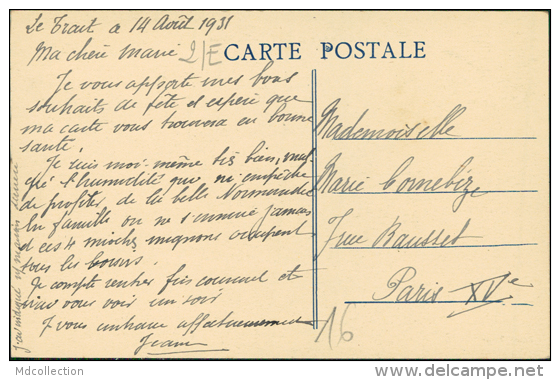 Le Trait a 14 Août 1931
Ma chère Marie
2/E
CARTE POSTALE
Je vous apporte mes bons
souhaits de fête et espère que
ma carte vous trouvera en bonne
santé.
Je suis moi-même très bien, mal-
gré l'humidité qui m'empêche
de profiter de la belle Normandie
En famille on ne s'ennuie jamais
et ces 4 mioches mignons occupent
tous les loisirs.
Je compte rentrer fin courant et
irai vous voir un soir
Je vous embrasse affectueusement
Jeanne
Mademoiselle
Marie Cornebize
7 rue Bausset
Paris XVe
16
Mdcollection
www.delcampe.net